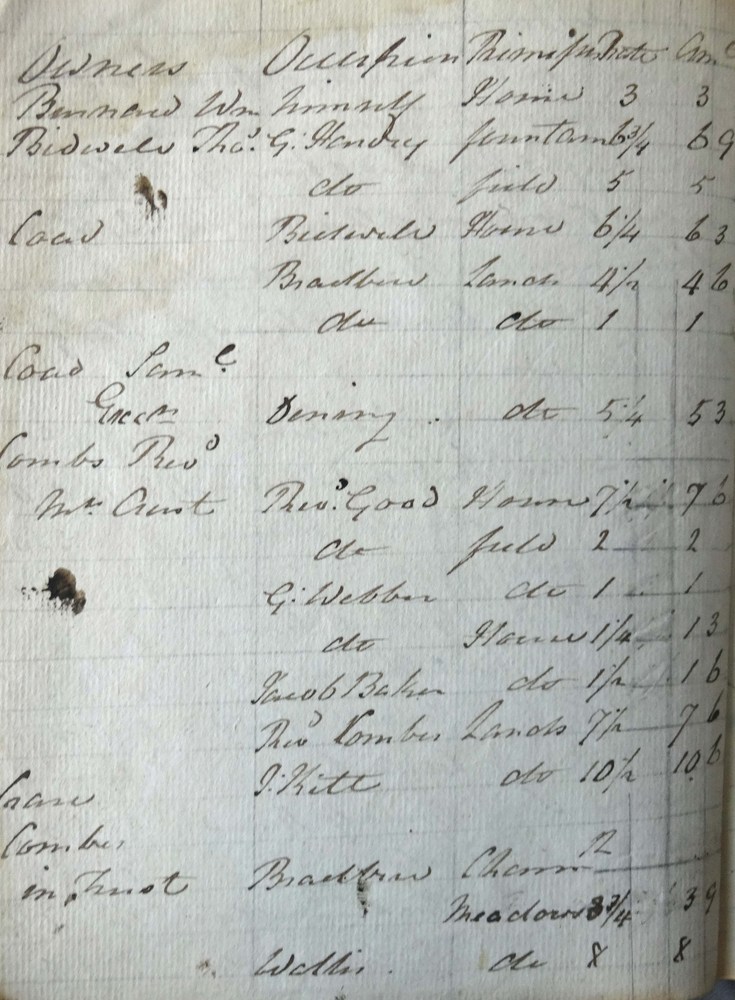 Owners Occupiers Premises Rate Amt
Bennard Wm himself House 3 3
Bidwell Thos. G: Handry fountain 6 3/4 6 9
do field 5 5
Coad Bidwell House 6 1/4 6 3
Bradbeer Lands 4 1/2 4 6
do do 1 1
Coad Saml.
Dening do 5 1/4 5 3
Combs Revd
Revd. Good House 7 1/2 7 6
do field 2 2
G: Webber do 1 1
do House 1 1/4 1 3
Jacob Baker do 1 1/2 1 6
Lands 7 1/2 7 6
J: Kitt do 10 1/2 10 6
Combes
in Trust Bradbeer
Meadows 3 3/4 3 9
Wallis do 8 8